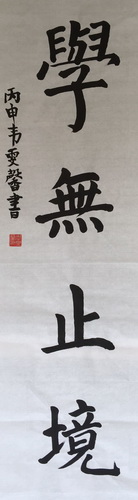 學無止境
丙申韦雯馨書